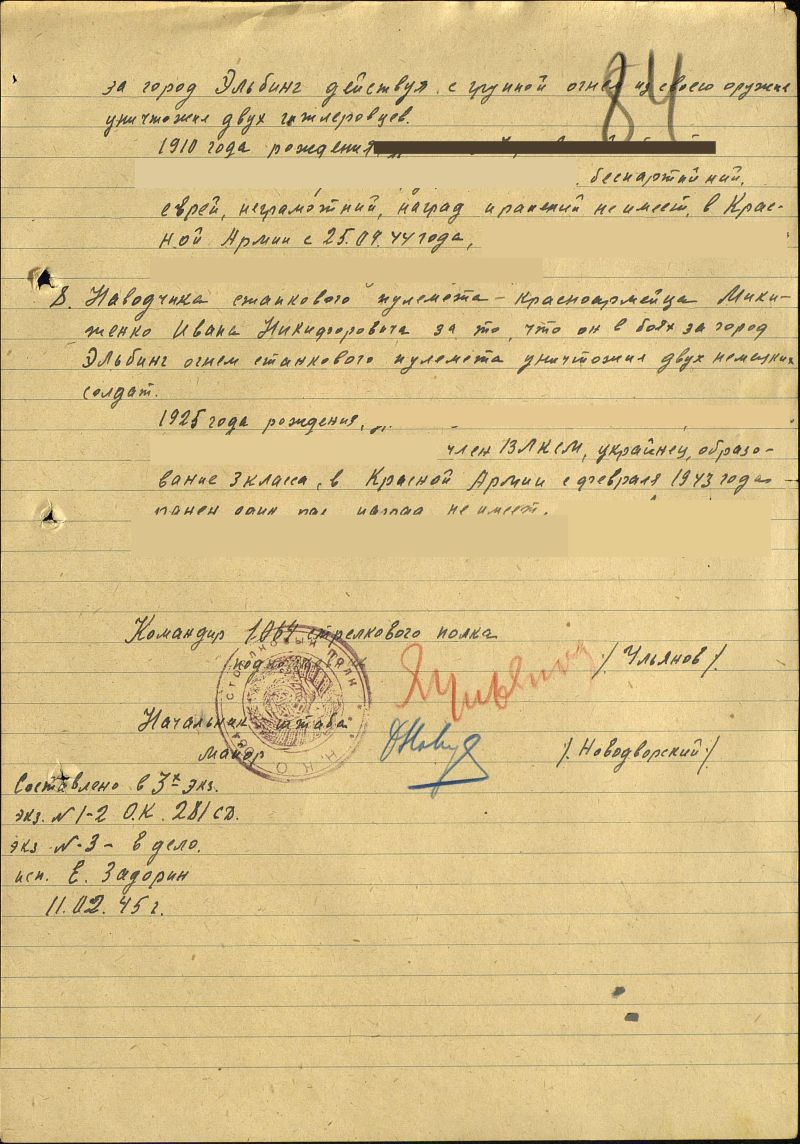 84
за город Эльбинг действуя с группой огнем из своего оружия
уничтожил двух гитлеровцев.
1910 года рождения
беспартийний,
еврей, неграмотний, наград и ранений не имеет, в Крас-
ной Армии с 25.09.44 года,
8. Наводчика станкового пулемета - красноармейца Мики-
женко Ивана Никифоровича за то, что он в боях за город
Эльбинг огнем станкового пулемета уничтожил двух немецких
солдат.
1925 года рождения,
член ВЛКСМ, украинец, образо-
вание 3 класса, в Красной Армии с февраля 1943 года
ранен один раз наград не имеет.
Командир 1064 стрелкового полка
подполковник /Ульянов/.
Начальник штаба
майор /.Новодворский./
Составлено в 3х экз.
экз. № 1-2 О.К. 281 СД.
экз № -3- в дело.
исп. Е. Задорин
11.02.45 г.